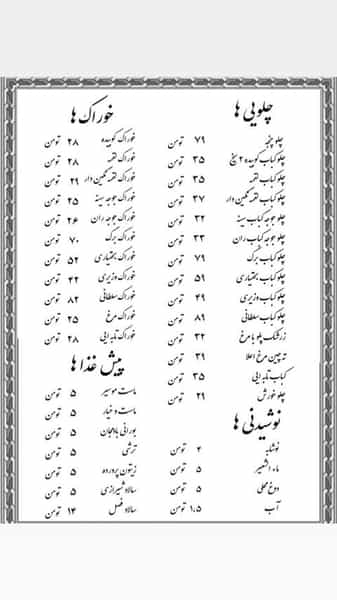 چلویی ها
چلو پنجه ۷۹ تومن
چلو کباب کوبیده ۲ سیخ ۳۵ تومن
چلو کباب لقمه ۳۵ تومن
چلو کباب لقمه نگین دار ۳۷ تومن
چلو جوجه کباب سینه ۳۲ تومن
چلو جوجه کباب ران ۳۳ تومن
چلو کباب برگ ۷۹ تومن
چلو کباب بختیاری ۵۹ تومن
چلو کباب وزیری ۴۹ تومن
چلو کباب سلطانی ۸۹ تومن
زرشک پلو با مرغ ۳۲ تومن
ته چین مرغ اعلا ۳۹ تومن
کباب تابه ایی ۳۵ تومن
چلو خورش ۲۹ تومن
نوشیدنی ها
نوشابه ۴ تومن
ماء الشعیر ۵ تومن
دوغ محلی ۵ تومن
آب ۱.۵ تومن
خوراک ها
خوراک کوبیده ۲۸ تومن
خوراک لقمه ۲۸ تومن
خوراک لقمه نگین دار ۲۹ تومن
خوراک جوجه سینه ۲۵ تومن
خوراک جوجه ران ۲۶ تومن
خوراک برگ ۷۰ تومن
خوراک بختیاری ۵۲ تومن
خوراک وزیری ۴۲ تومن
خوراک سلطانی ۸۲ تومن
خوراک مرغ ۲۵ تومن
خوراک تابه ایی ۲۸ تومن
پیش غذا ها
ماست موسیر ۵ تومن
ماست و خیار ۵ تومن
بورانی بادمجان ۵ تومن
ترشی ۵ تومن
زیتون پرورده ۵ تومن
سالاد شیرازی ۵ تومن
سالاد فصل ۱۳ تومن